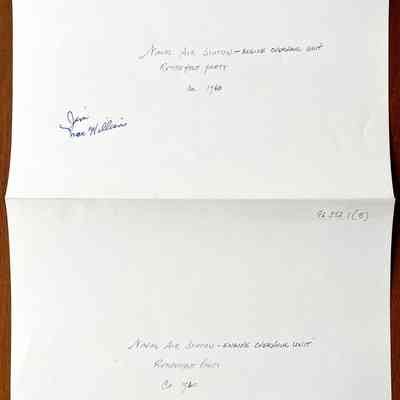 Naval Air Station - Engine Overhaul Unit
Retirement Party
Ca 1960
Jim
MacWilliams
92.232.1(5)
Naval Air Station - Engine Overhaul Unit
Retirement Party
Ca 1960